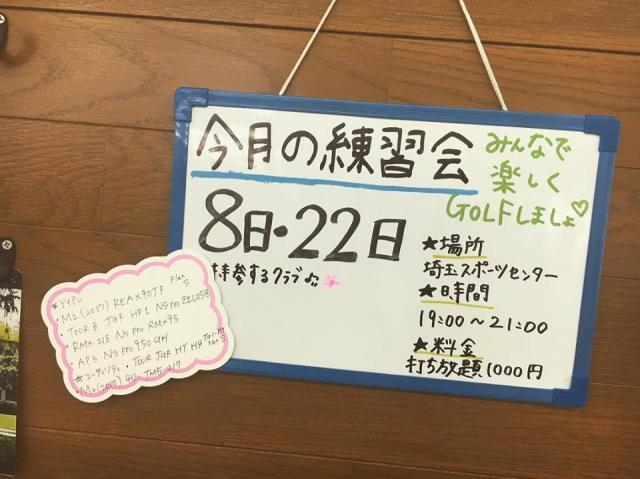 今月の練習会
みんなで
楽しく
GOLFしましょ♡
8日・22日
持参するクラブ♫
★場所
埼玉スポーツセンター
★時間
19:00～21:00
★料金
打ち放題1000円
☆アイアン
・M2(2017) REAX90JP Flex S
・TOUR B JGR HF1 NSpro ZELOS8
・RMX 218 NSpro RMX95
・AP3 NSPRO 950GH
☆ユーティリティ・TOUR JGR HY H4
・M2(2017) 4U TM5-217